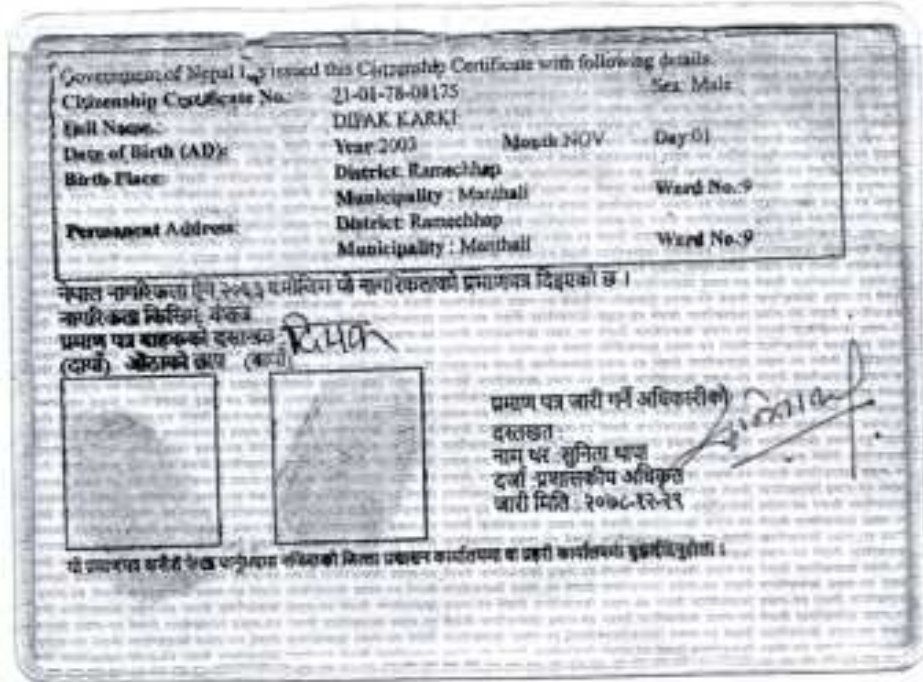 Government of Nepal has issued this Citizenship Certificate with following details.
Citizenship Certificate No.: 21-01-78-04175 Sex: Male
Full Name.: DIPAK KARKI
Date of Birth (AD): Year 2003 Month NOV Day 01
Birth Place: District: Ramechhap
Municipality : Manthali Ward No.:9
Permanent Address: District: Ramechhap
Municipality : Manthali Ward No.:9
नेपाल नागरिकता ऐन २०६३ बमोजिम यो नागरिकताको प्रमाणपत्र दिइएको छ ।
नागरिकता किसिम: वंशज
प्रमाण पत्र वाहकको दस्तखत : दिपक
(दायाँ) औंठाको छाप (बायाँ)
प्रमाण पत्र जारी गर्ने अधिकारीको
दस्तखत :
नाम थर : सुनिता थापा
दर्जा : प्रशासकीय अधिकृत
जारी मिति : २०७८-१२-२९
यो प्रमाणपत्र कसैले फेला पार्नुभएमा नजिकको जिल्ला प्रशासन कार्यालयमा वा प्रहरी कार्यालयमा बुझाईदिनुहोला ।